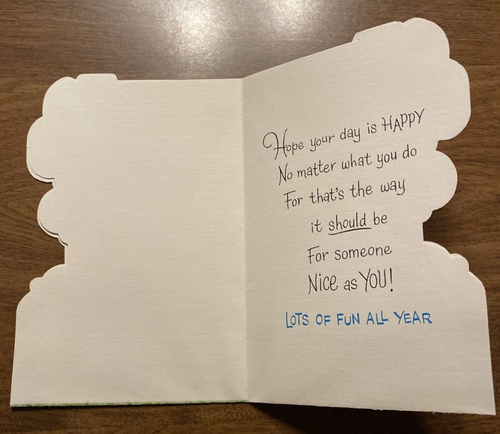 Hope your day is HAPPY
No matter what you do
For that's the way
it should be
For someone
NICE as YOU!
LOTS OF FUN ALL YEAR